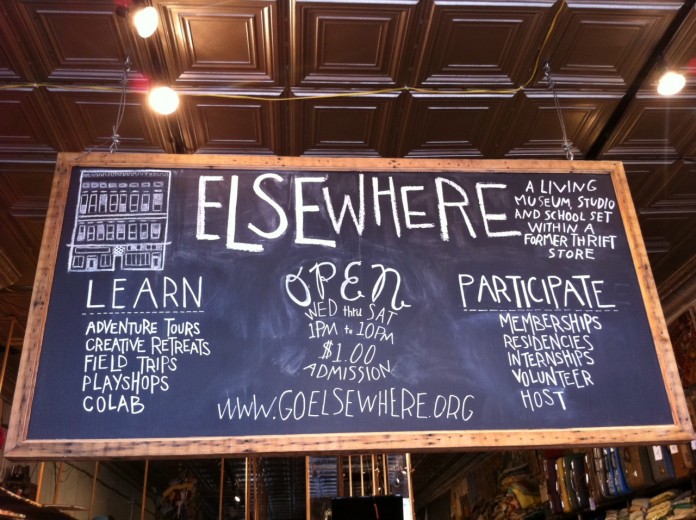 ELSEWHERE
A LIVING
MUSEUM, STUDIO
AND SCHOOL SET
WITHIN A
FORMER THRIFT
STORE
LEARN
ADVENTURE TOURS
CREATIVE RETREATS
FIELD TRIPS
PLAYSHOPS
COLAB
OPEN
WED thru SAT
1PM to 10PM
$1.00
ADMISSION
PARTICIPATE
MEMBERSHIPS
RESIDENCIES
INTERNSHIPS
VOLUNTEER
HOST
WWW.GOELSEWHERE.ORG